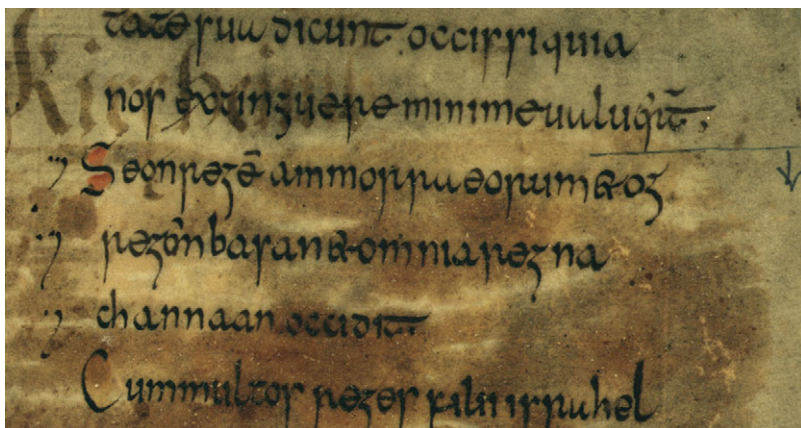 tate suu dicunt occissi quia
nos extinguere minime
Seon regē ammorrueorum & og
basan & omnia regna
channaan occidit.
Cum multos reges filii israhel